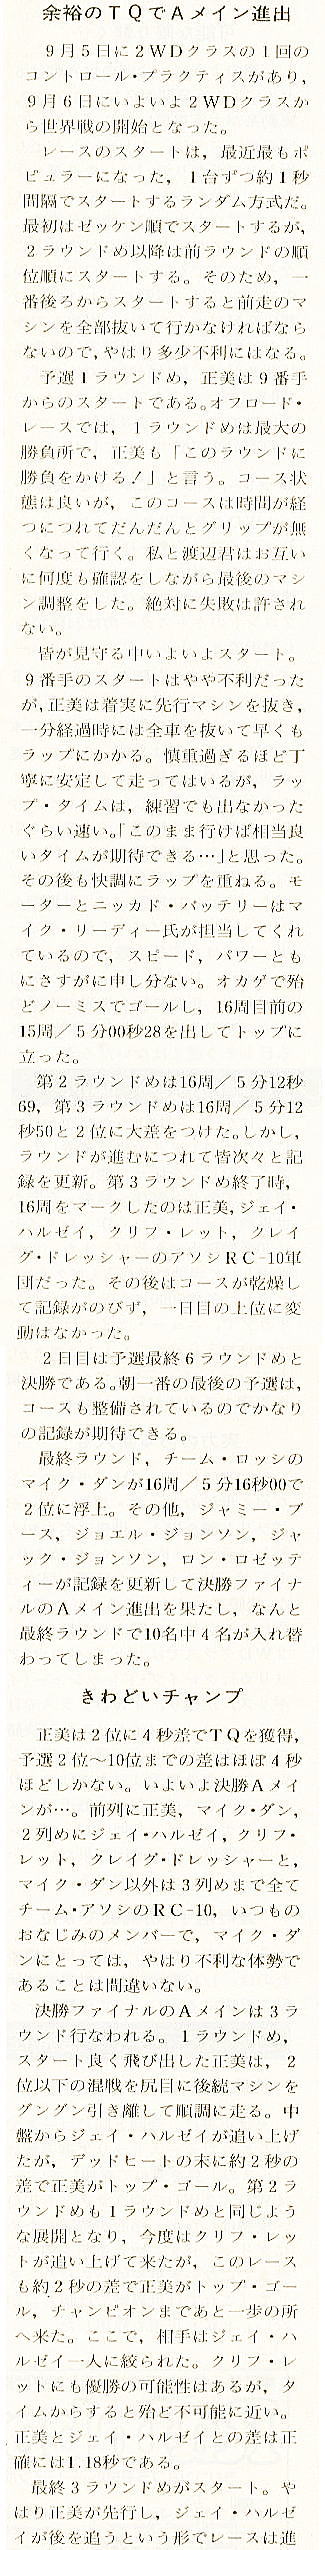 余裕のTQでAメイン進出
9月5日に2WDクラスの1回の
コントロール・プラクティスがあり,
9月6日にいよいよ2WDクラスか
ら世界戦の開始となった。
レースのスタートは,最近最もポ
ピュラーになった,1台ずつ約1秒
間隔でスタートするランダム方式だ。
最初はゼッケン順でスタートするが,
2ラウンドめ以降は前ラウンドの順
位順にスタートする。そのため,一
番後ろからスタートすると前走のマ
シンを全部抜いて行かなければなら
ないので,やはり多少不利にはなる。
予選1ラウンドめ,正美は9番手
からのスタートである。オフロード・
レースでは,1ラウンドめは最大の
勝負所で,正美も「このラウンドに
勝負をかける!」と言う。コース状
態は良いが,このコースは時間が経
つにつれてだんだんとグリップが無
くなって行く。私と渡辺君はお互い
に何度も確認をしながら最後のマシ
ン調整をした。絶対に失敗は許され
ない。
皆が見守る中いよいよスタート。
9番手のスタートはやや不利だった
が,正美は着実に先行マシンを抜き,
一分経過時には全車を抜いて早くも
ラップにかかる。慎重過ぎるほど丁
寧に安定して走ってはいるが,ラッ
プ・タイムは,練習でも出なかった
ぐらい速い。「このまま行けば相当良
いタイムが期待できる…」と思った。
その後も快調にラップを重ねる。モ
ーターとニッカド・バッテリーはマ
イク・リーディー氏が担当してくれ
ているので,スピード,パワーとも
にさすがに申し分ない。オカゲで殆
どノーミスでゴールし,16周目前の
15周/5分00秒28を出してトップに
立った。
第2ラウンドめは16周/5分12秒
69,第3ラウンドめは16周/5分12
秒50と2位に大差をつけた。しかし,
ラウンドが進むにつれて皆次々と記
録を更新。第3ラウンドめ終了時,
16周をマークしたのは正美,ジェイ・
ハルゼイ,クリフ・レット,クレイ
グ・ドレッシャーのアソシRC-10軍
団だった。その後はコースが乾燥し
て記録がのびず,一日目の上位に変
動はなかった。
2日目は予選最終6ラウンドめと
決勝である。朝一番の最後の予選は,
コースも整備されているのでかなり
の記録が期待できる。
最終ラウンド,チーム・ロッシの
マイク・ダンが16周/5分16秒00で
2位に浮上。その他,ジャミー・ブ
ース,ジョエル・ジョンソン,ジャ
ック・ジョンソン,ロン・ロゼッテ
ィーが記録を更新して決勝ファイナ
ルのAメイン進出を果たし,なんと
最終ラウンドで10名中4名が入れ替
わってしまった。
きわどいチャンプ
正美は2位に4秒差でTQを獲得,
予選2位〜10位までの差はほぼ4秒
ほどしかない。いよいよ決勝Aメイ
ンが…。前列に正美,マイク・ダン,
2列めにジェイ・ハルゼイ,クリフ・
レット,クレイグ・ドレッシャーと,
マイク・ダン以外は3列めまで全て
チーム・アソシのRC-10,いつもの
おなじみのメンバーで,マイク・ダ
ンにとっては,やはり不利な体勢で
あることは間違いない。
決勝ファイナルのAメインは3ラ
ウンド行なわれる。1ラウンドめ,
スタート良く飛び出した正美は,2
位以下の混戦を尻目に後続マシンを
グングン引き離して順調に走る。中
盤からジェイ・ハルゼイが追い上げ
たが,デッドヒートの末に約2秒の
差で正美がトップ・ゴール。第2ラ
ウンドめも1ラウンドめと同じよう
な展開となり,今度はクリフ・レッ
トが追い上げて来たが,このレース
も約2秒の差で正美がトップ・ゴー
ル,チャンピオンまであと一歩の所
へ来た。ここで,相手はジェイ・ハ
ルゼイ一人に絞られた。クリフ・レ
ットにも優勝の可能性はあるが,タ
イムからすると殆ど不可能に近い。
正美とジェイ・ハルゼイとの差は正
確には1.18秒である。
最終3ラウンドめがスタート。や
はり正美が先行し,ジェイ・ハルゼ
イが後を追うという形でレースは進